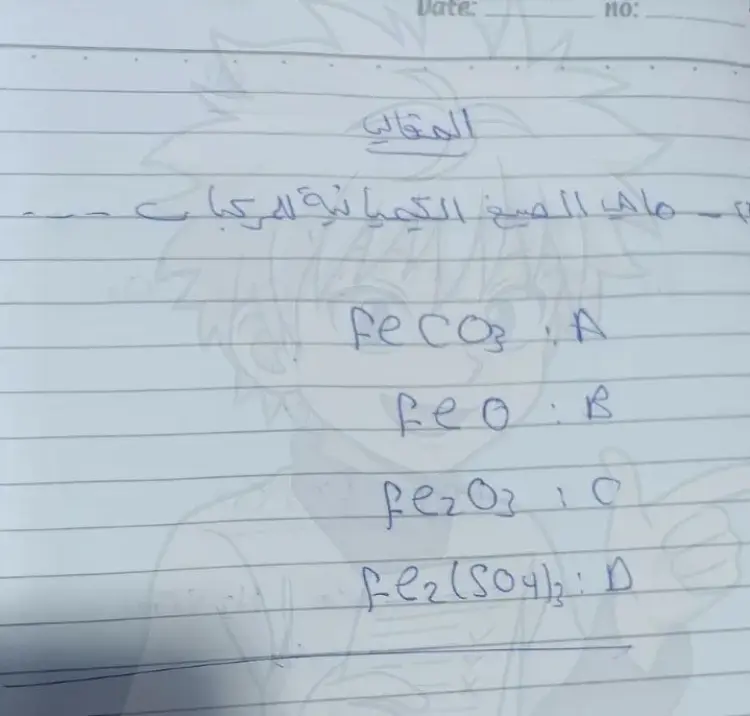 Date: no:
المقالي
- ماهي الصيغ الكيميائية للمركبات ----
A : FeCO3
B : FeO
C : Fe2O3
D : Fe2(SO4)3